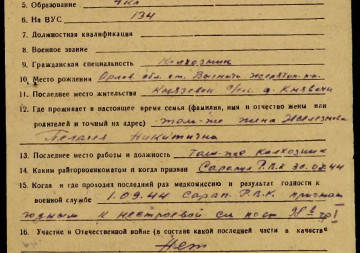 5. Образование 4кл
6. На ВУС 134
7. Должностная квалификация
8. Военное звание
9. Гражданская специальность Колхозник
10. Место рождения Орлов. обл. ст.
11. Последнее место жительства с/с. д.
12. Где проживает в настоящее время семья (фамилия, имя и отчество жены или
родителей и точный их адрес) там-же жена
Пелагея Никитична
13. Последнее место работы и должность там-же колхозник
14. Каким райгорвоенкоматом и когда призван Р.В.К 30.07.44
15. Когда и где проходил последний раз медкомиссию и результат годности к
военной службе 1.09.44 Сарап. Р.В.К. признан
годным к нестроевой сл
16. Участие в Отечественной войне (в составе какой последней части в качестве
Нет